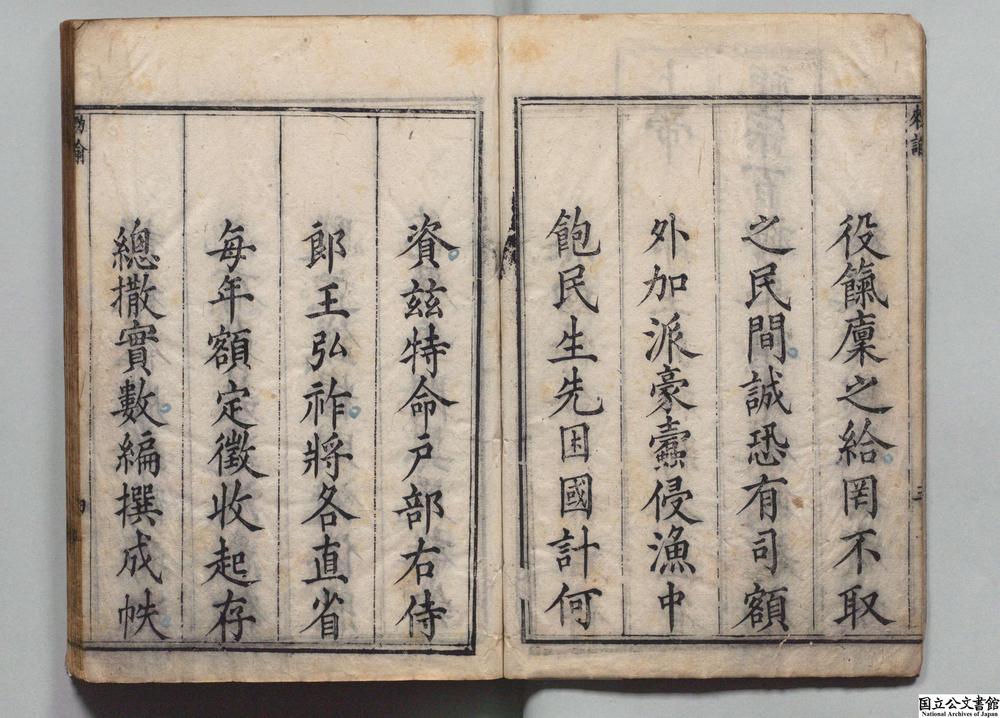 役餼廩之給罔不取
之民間誠恐有司額
外加派豪蠹侵漁中
飽民生先困國計何
資茲特命户部右侍
郎王弘祚將各直省
每年額定徵收起存
總撒實數編撰成帙
国立公文書館
National Archives of Japan